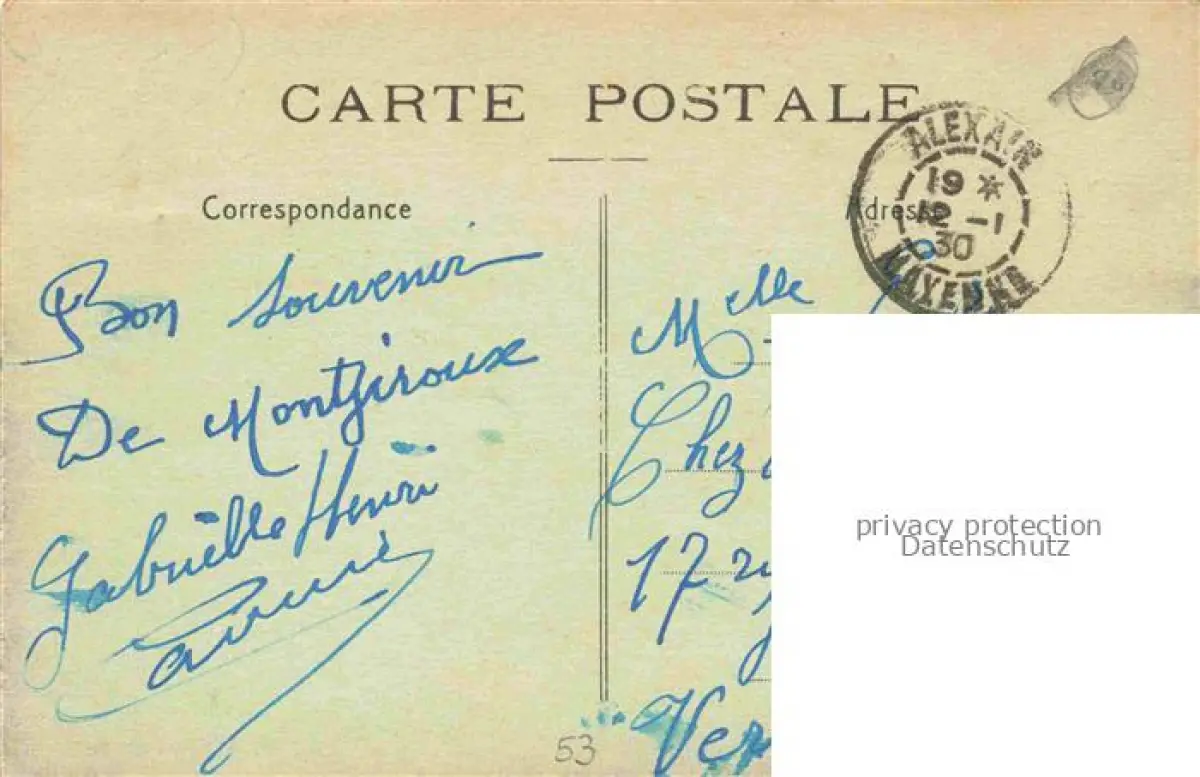 CARTE POSTALE
Correspondance
Adresse
ALEXAIN
19 *
12 -1
30
MAYENNE
Bon Souvenir
De Montgiroux
Gabrielle Henri
Melle
Chez
17
Ver
53
privacy protection
Datenschutz